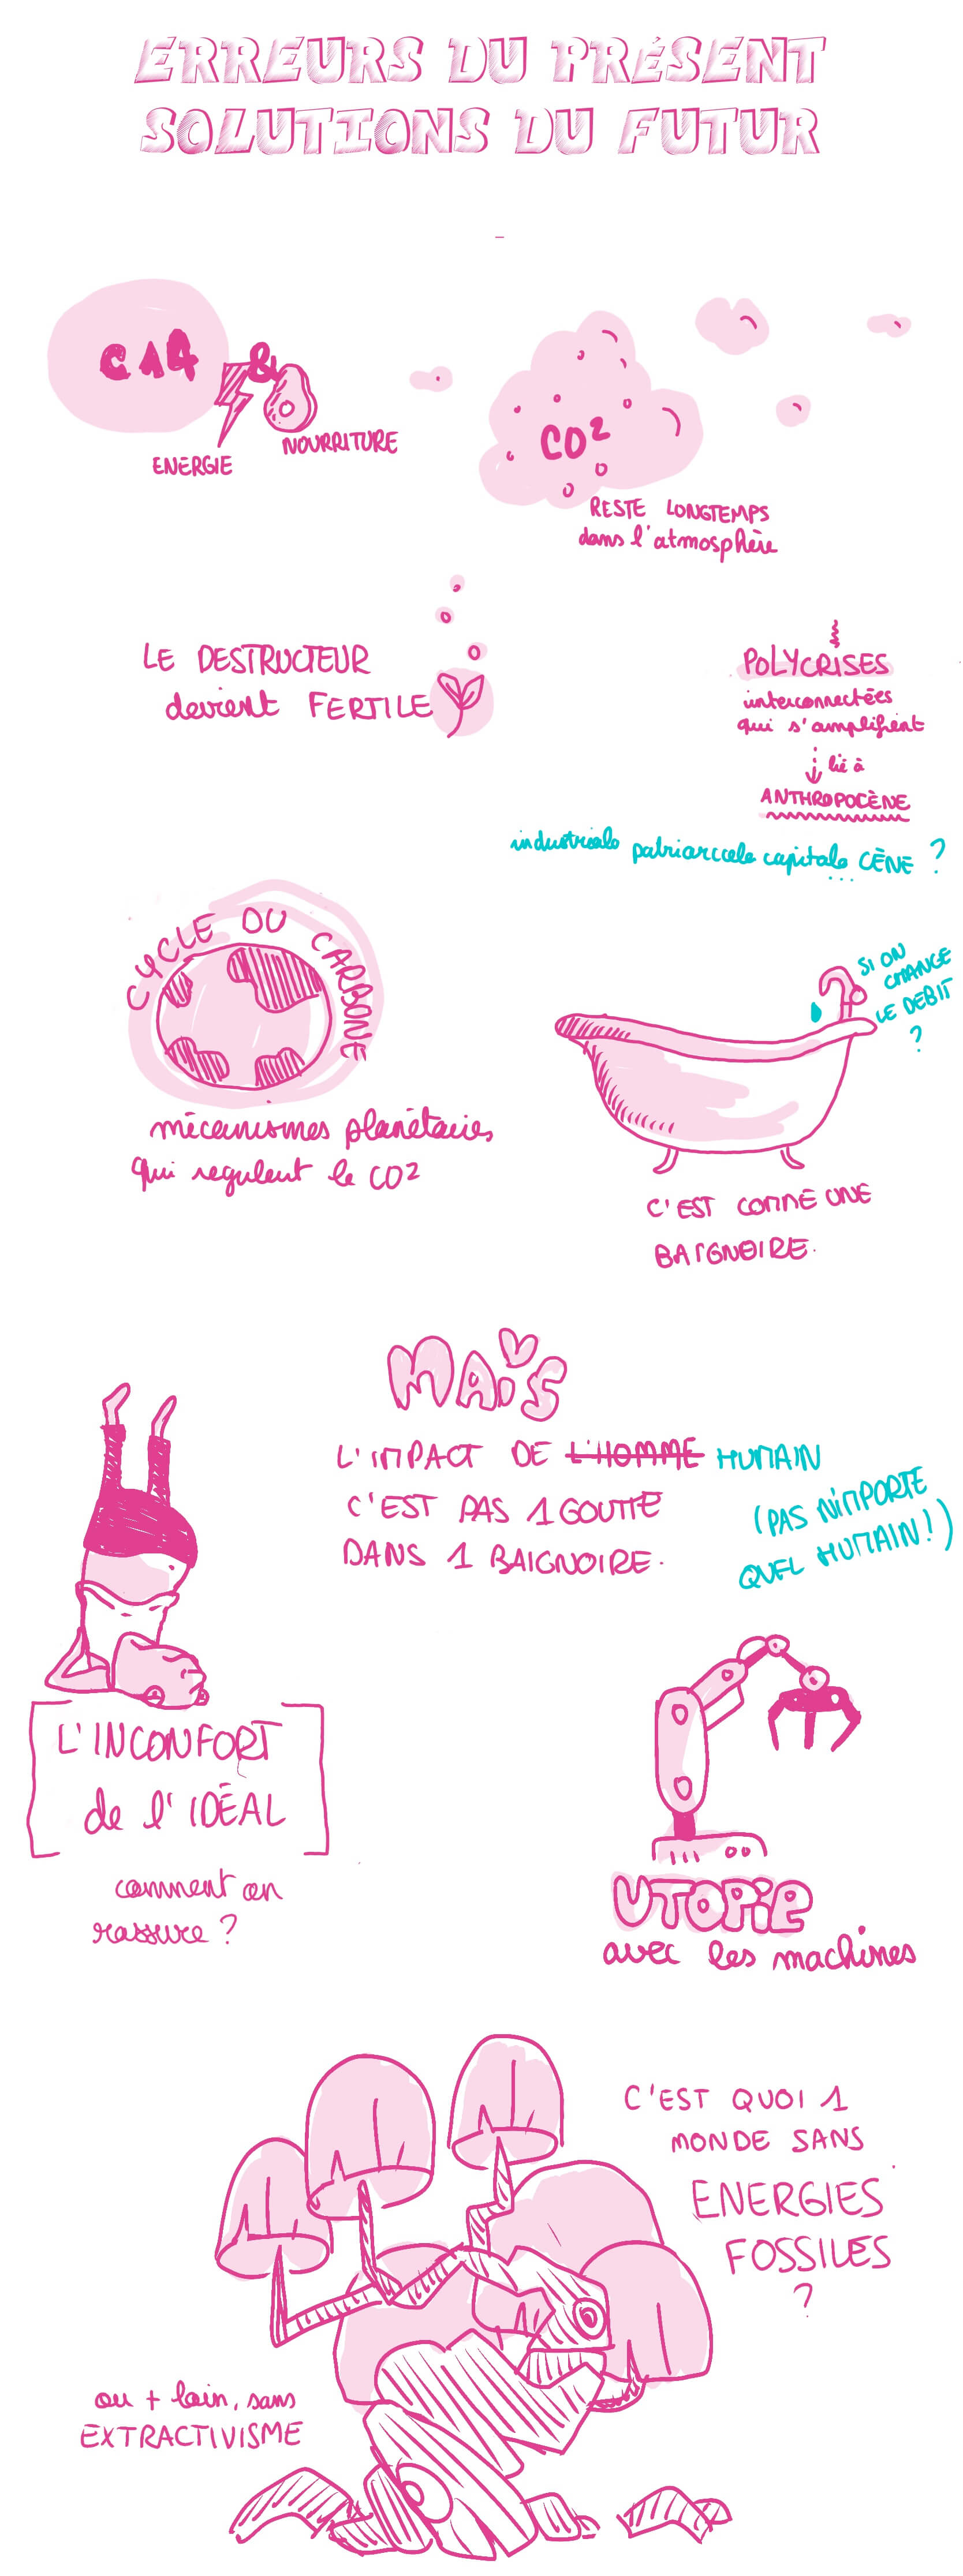 ERREURS DU PRÉSENT
SOLUTIONS DU FUTUR
C14 &
ENERGIE
NOURRITURE
CO2
RESTE LONGTEMPS
dans l'atmosphère
LE DESTRUCTEUR
devient FERTILE
POLYCRISES
interconnectées
qui s'amplifient
lié à
ANTHROPOCÈNE
industrialo patriarcalo capitalo CÈNE ?
...
CYCLE DU CARBONE
mécanismes planétaires
qui regulent le CO2
SI ON
CHANGE
LE DEBIT
?
C'EST COMME UNE
BAIGNOIRE.
MAIS
L'IMPACT DE L'HOMME HUMAIN
C'EST PAS 1 GOUTTE
DANS 1 BAIGNOIRE.
(PAS N'IMPORTE
QUEL HUMAIN!)
L'INCONFORT
de l'IDÉAL
comment on
rassure ?
UTOPIE
avec les machines
C'EST QUOI 1
MONDE SANS
ENERGIES
FOSSILES
?
ou + loin, sans
EXTRACTIVISME